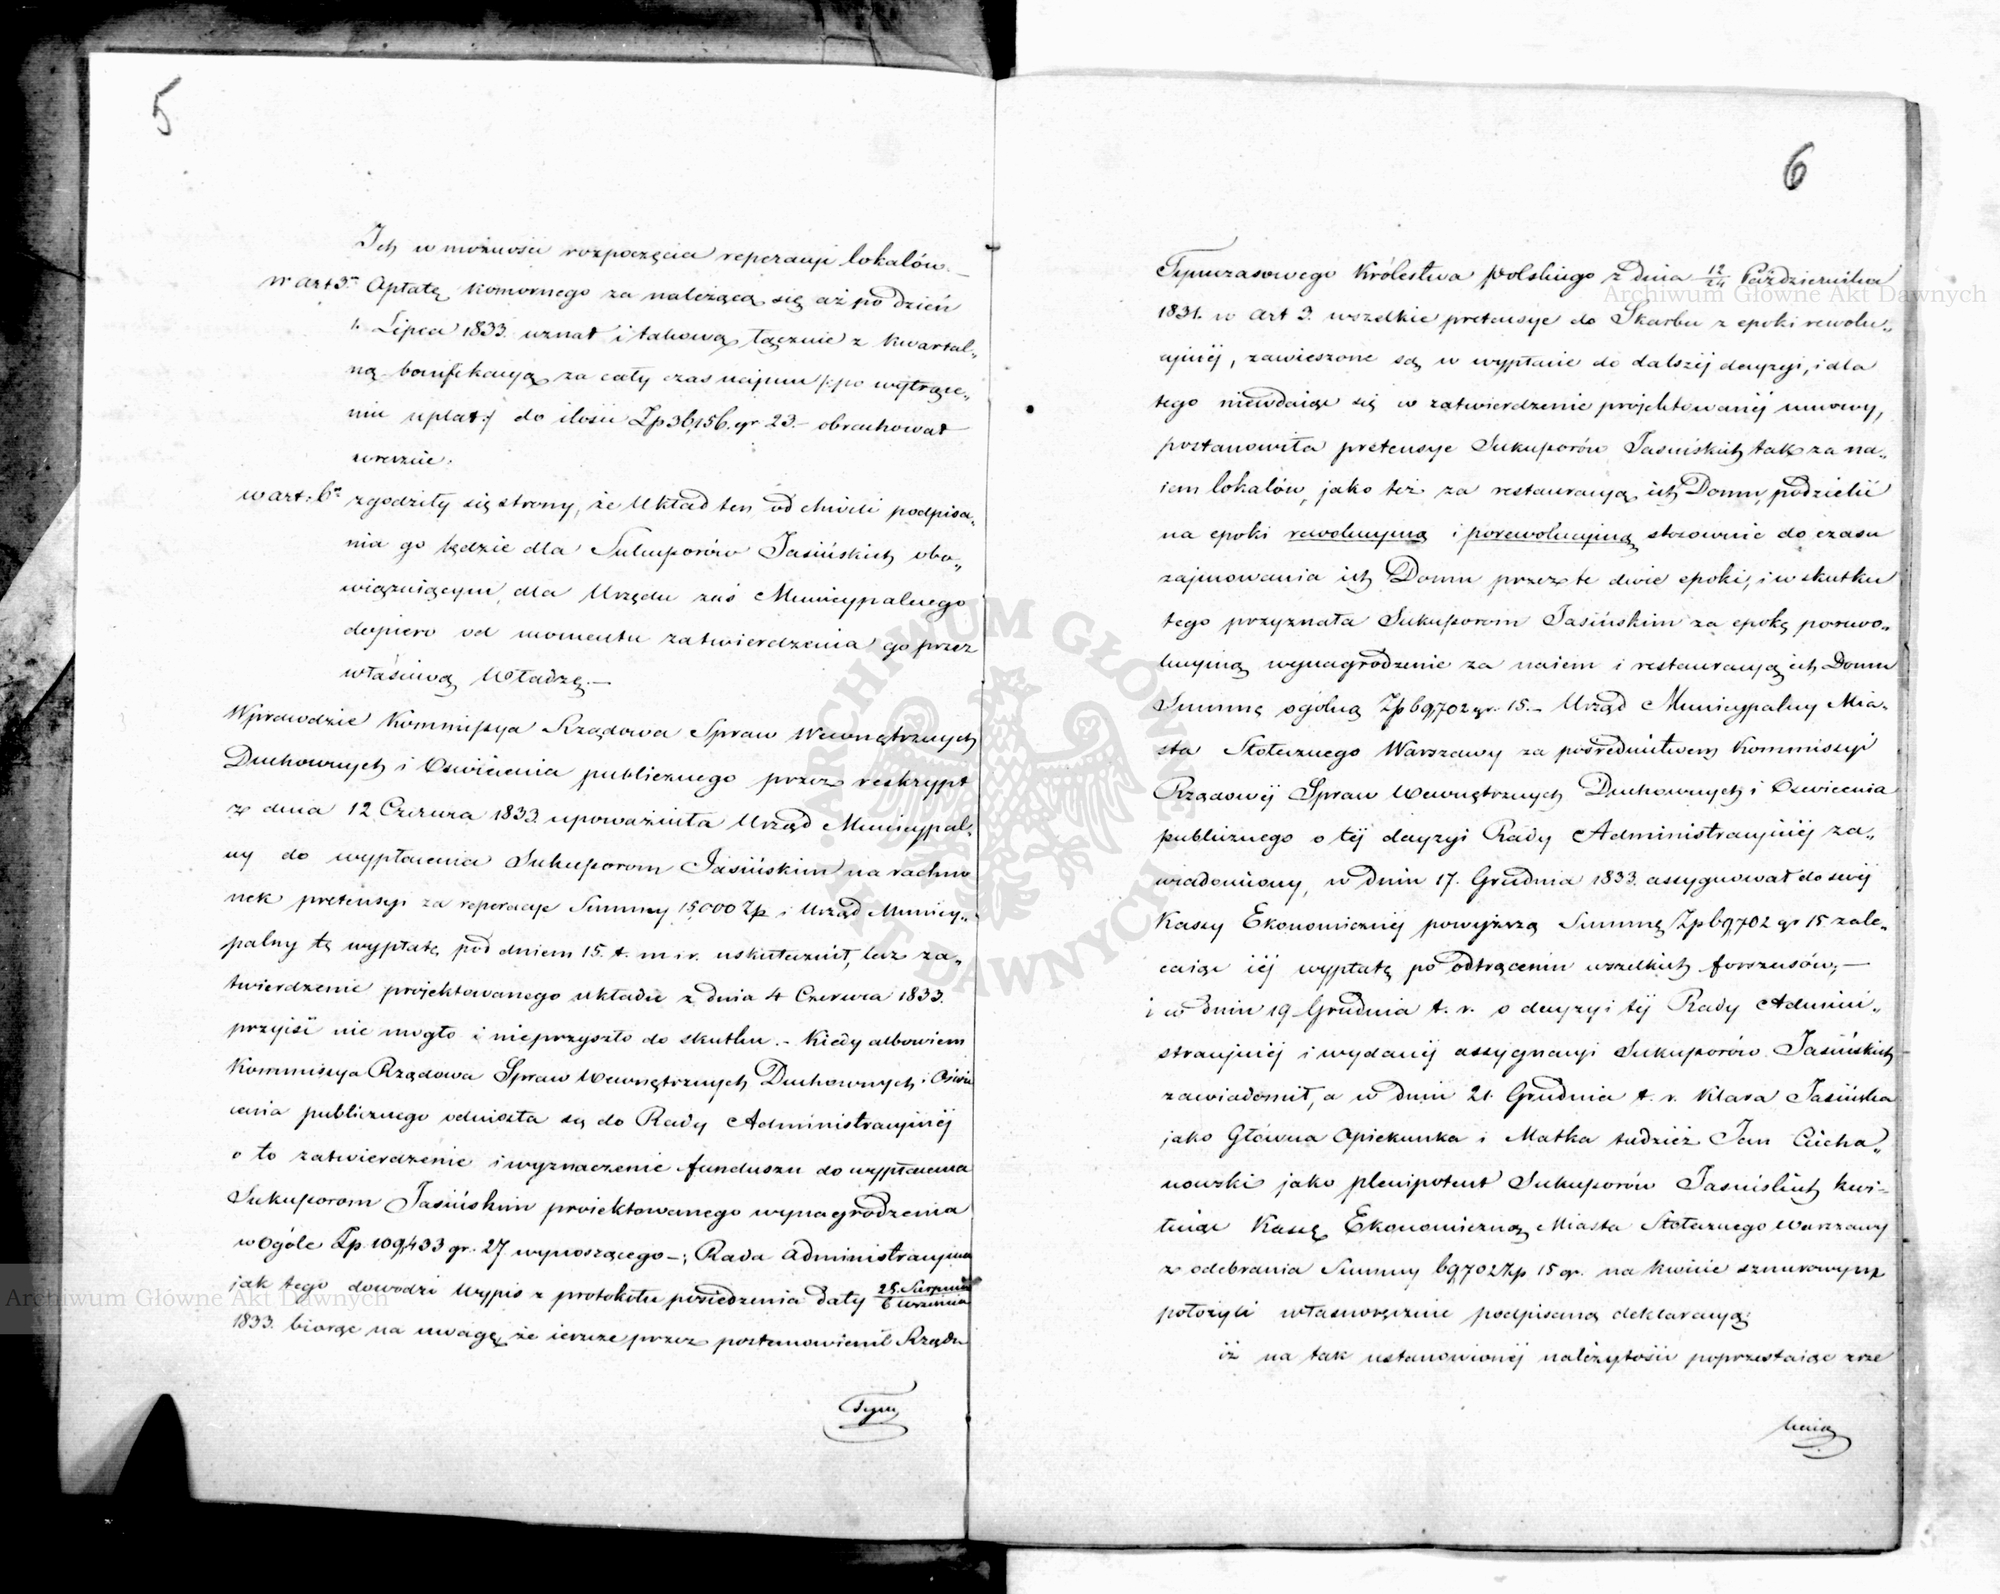 5
Ich w możności rozpoczęcia reperacyi lokalów.—
w art 5m Opłatę komornego za należącą się aż po dzień
1. Lipca 1833. uznał i takową łącznie z kwartal„
ną bonifikacyą za cały czas najmu /:po wytrące„
niu upłat:/ do ilości Zp 36,156. gr 23.— obrachował
wreszcie.
w art: 6m zgodziły się strony, że Układ ten od chwili podpisa„
nia go będzie dla Sukcessorów Jasińskich obo„
wiązuiącym, dla Urzędu zaś Municypalnego
dopiero od momentu zatwierdzenia go przez
właściwą Władzę.—
Wprawdzie Kommissya Rządowa Spraw Wewnętrznych
Duchownych i Oświecenia publicznego przez reskrypt
z dnia 12 Czerwca 1833. upoważniła Urząd Municypal„
ny do wypłacenia Sukcessorom Jasińskim na rachu
nek pretensyi za reperacye Summy 15,000 Zp. i Urząd Municy„
palny tę wypłatę pod dniem 15. t. m i r. uskutecznił, lecz za„
twierdzenie projektowanego układu z dnia 4 Czerwca 1833.
przyiść nie mogło i nieprzyszło do skutku.— Kiedy albowiem
Kommissya Rządowa Spraw Wewnętrznych Duchownych i Oświe
cenia publicznego odniosła się do Rady Administracyjnéj
o to zatwierdzenie i wyznaczenie funduszu do wypłacenia
Sukcessorom Jasińskim proiektowanego wynagrodzenia
w Ogóle Zp. 109,433 gr. 27 wynoszącego—; Rada Administracyjna
jak tego dowodzi Wypis z protokółu posiedzenia daty 25. Sierpnia / 6 Września
1833. biorąc na uwagę, że ieszcze przez postanowienie Rządu
Tym
6
Tymczasowego Królestwa Polskiego z dnia 12/24 Października
1831. w art 3. wszelkie pretensye do Skarbu z epoki rewolu„
cyjnéj, zawieszone są w wypłacie do dalszéj decyzyi, i dla
tego niewdaiąc się w zatwierdzenie projektowanéj umowy,
postanowiła pretensye Sukcessorów Jasińskich tak za na„
iem lokalów, jako też za restauracyą ich Domu, podzielić
na epoki rewolucyjną i porewolucyjną stosownie do czasu
zajmowania ich Domu przez te dwie epoki, i w skutku
tego przyznała Sukcessorom Jasińskim za epokę porewo„
lucyjną wynagrodzenie za naiem i restauracyą ich Domu
Summę ogólną Zp 69,702 gr. 15.— Urząd Municypalny Mia„
sta Stołecznego Warszawy za pośrednictwem Kommissyi
Rządowéj Spraw Wewnętrznych Duchownych i Oświecenia
publicznego o téj decyzyi Rady Administracyjnéj za„
wiadomiony, w dniu 17. Grudnia 1833. assygnował do swéj
Kassy Ekonomicznéj powyższą Summę Zp 69,702 gr 15 zale„
caiąc iéj wypłatę po odtrąceniu wszelkich forszusów;—
i w dniu 19 Grudnia t. r. o decyzyi téj Rady Admini„
stracyjnéj i wydanéj assygnacyi Sukcessorów Jasińskich
zawiadomił, a w dniu 21. Grudnia t. r. Klara Jasińska
jako Główna Opiekunka i Matka tudzież Jan Cicha„
nowski jako plenipotent Sukcessorów Jasińskich kwi„
tuiąc Kassę Ekonomiczną Miasta Stołecznego Warszawy
z odebrania Summy 69,702 Zp 15 gr. na kwicie sznurowym
położyli własnoręcznie podpisaną deklaracyą;
iż na tak ustanowionéj należytości poprzestaiąc zrze
kaią
Archiwum Główne Akt Dawnych
Archiwum Główne Akt Dawnych
ARCHIWUM GŁÓWNE AKT DAWNYCH